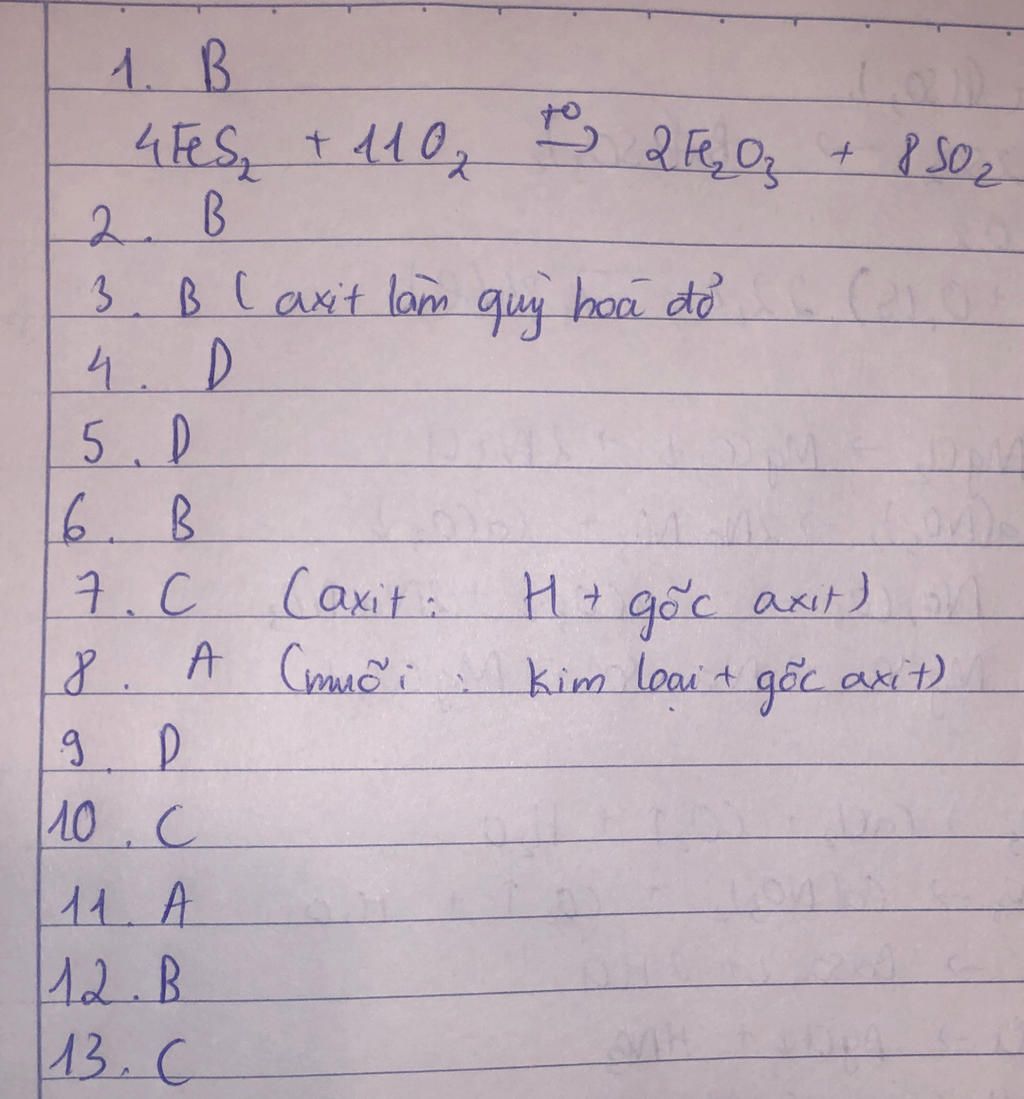 1. B
4FeS₂ + 11O₂ →(t°) 2Fe₂O₃ + 8SO₂
2. B
3. B ( axit làm quỳ hoá đỏ
4. D
5. D
6. B
7. C (axit: H + gốc axit)
8. A (muối: kim loại + gốc axit)
9. D
10. C
11. A
12. B
13. C